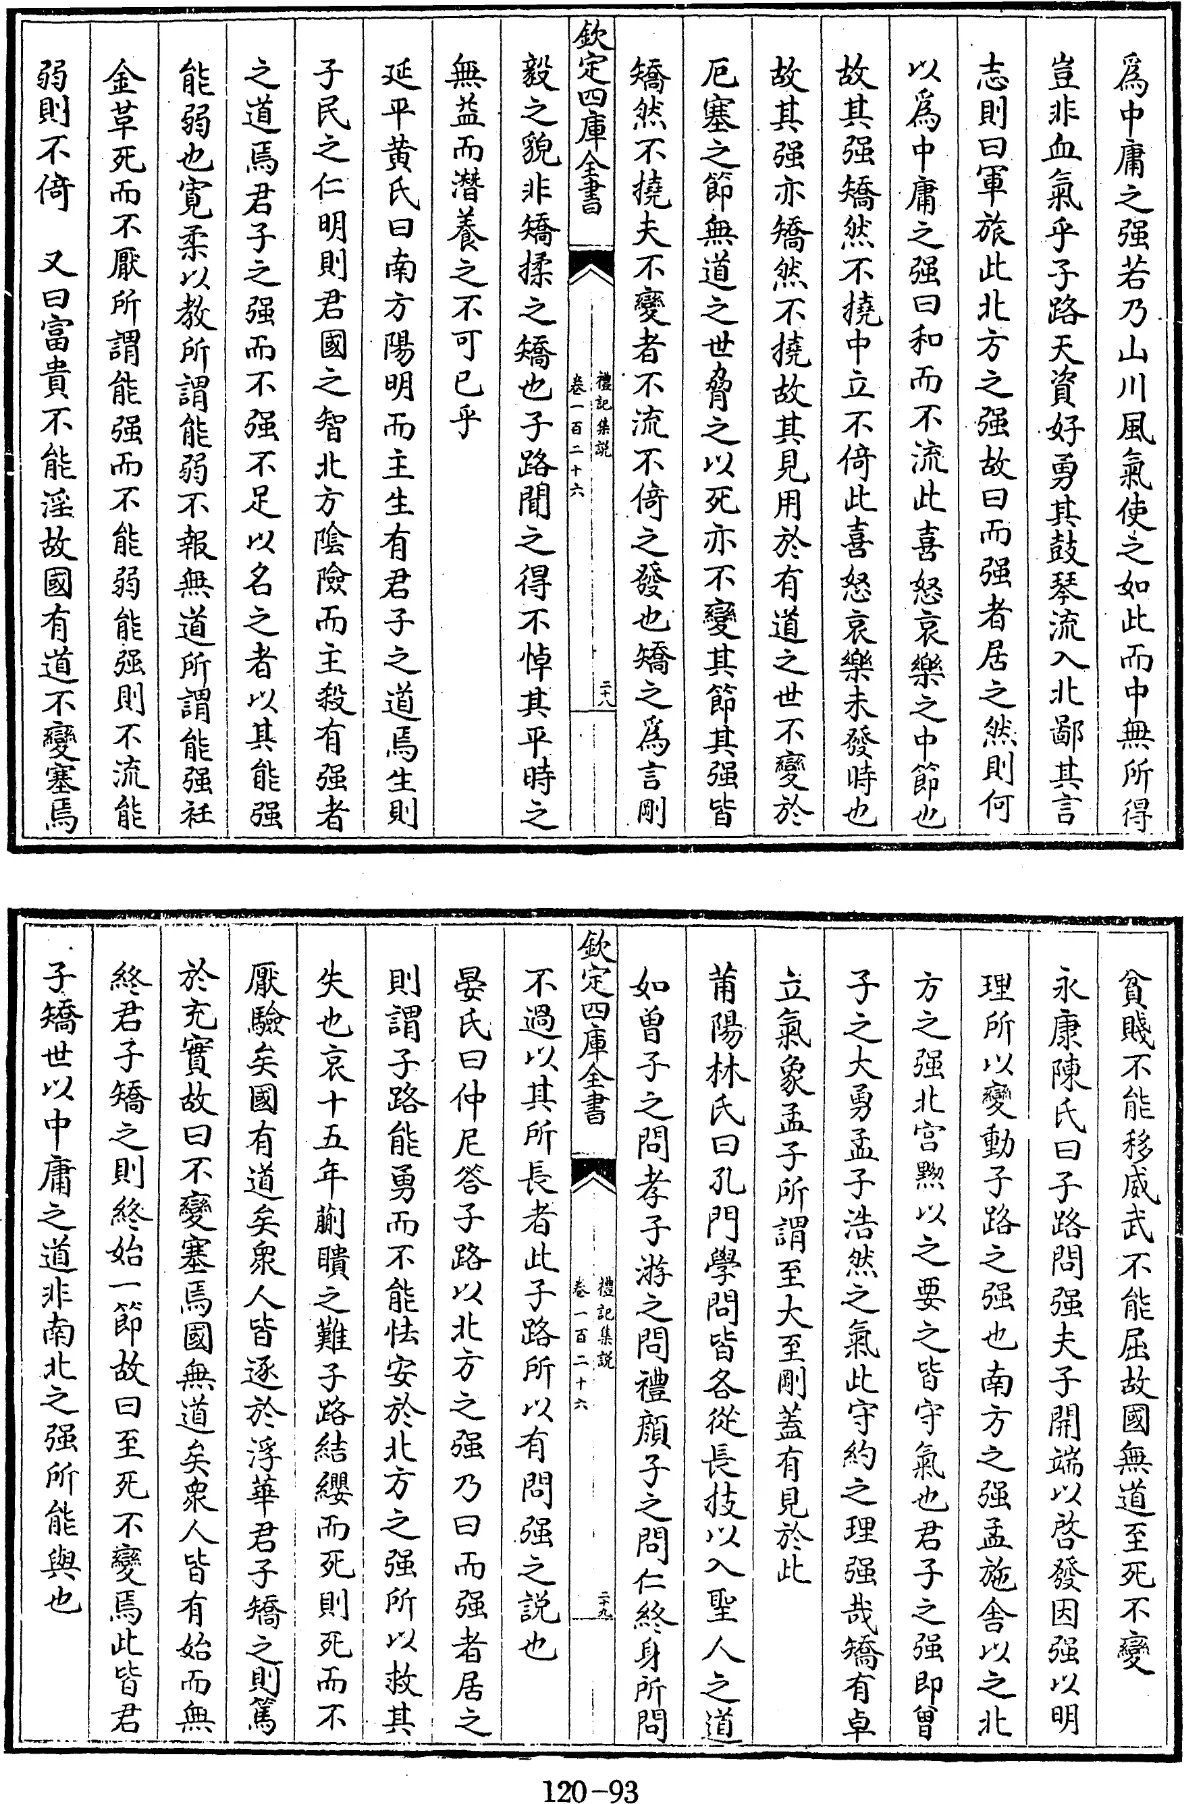 爲中庸之强若乃山川風氣使之如此而中無所得
豈非血氣乎子路天資好勇其鼓琴流入北鄙其言
志則曰軍旅此北方之强故曰而强者居之然則何
以爲中庸之强曰和而不流此喜怒哀樂之中節也
故其强矯然不撓中立不倚此喜怒哀樂未發時也
故其强亦矯然不撓故其見用於有道之世不變於
厄塞之節無道之世脅之以死亦不變其節其强皆
矯然不撓夫不變者不流不倚之發也矯之爲言剛
欽定四庫全書
禮記集說
卷一百二十六
二十八
毅之貌非矯揉之矯也子路聞之得不悼其平時之
無益而潛養之不可已乎
延平黄氏曰南方陽明而主生有君子之道焉生則
子民之仁明則君國之智北方陰險而主殺有强者
之道焉君子之强而不强不足以名之者以其能强
能弱也寛柔以教所謂能弱不報無道所謂能强衽
金革死而不厭所謂能强而不能弱能强則不流能
弱則不倚 又曰富貴不能淫故國有道不變塞焉
貧賤不能移威武不能屈故國無道至死不變
永康陳氏曰子路問强夫子開端以啓發因强以明
理所以變動子路之强也南方之强孟施舍以之北
方之强北宫黝以之要之皆守氣也君子之强即曾
子之大勇孟子浩然之氣此守約之理强哉矯有卓
立氣象孟子所謂至大至剛蓋有見於此
莆陽林氏曰孔門學問皆各從長技以入聖人之道
如曾子之問孝子游之問禮顔子之問仁終身所問
欽定四庫全書
禮記集說
卷一百二十六
二十九
不過以其所長者此子路所以有問强之説也
晏氏曰仲尼答子路以北方之强乃曰而强者居之
則謂子路能勇而不能怯安於北方之强所以救其
失也哀十五年蒯聵之難子路結纓而死則死而不
厭驗矣國有道矣衆人皆逐於浮華君子矯之則篤
於充實故曰不變塞焉國無道矣衆人皆有始而無
終君子矯之則終始一節故曰至死不變焉此皆君
子矯世以中庸之道非南北之强所能與也
120-93